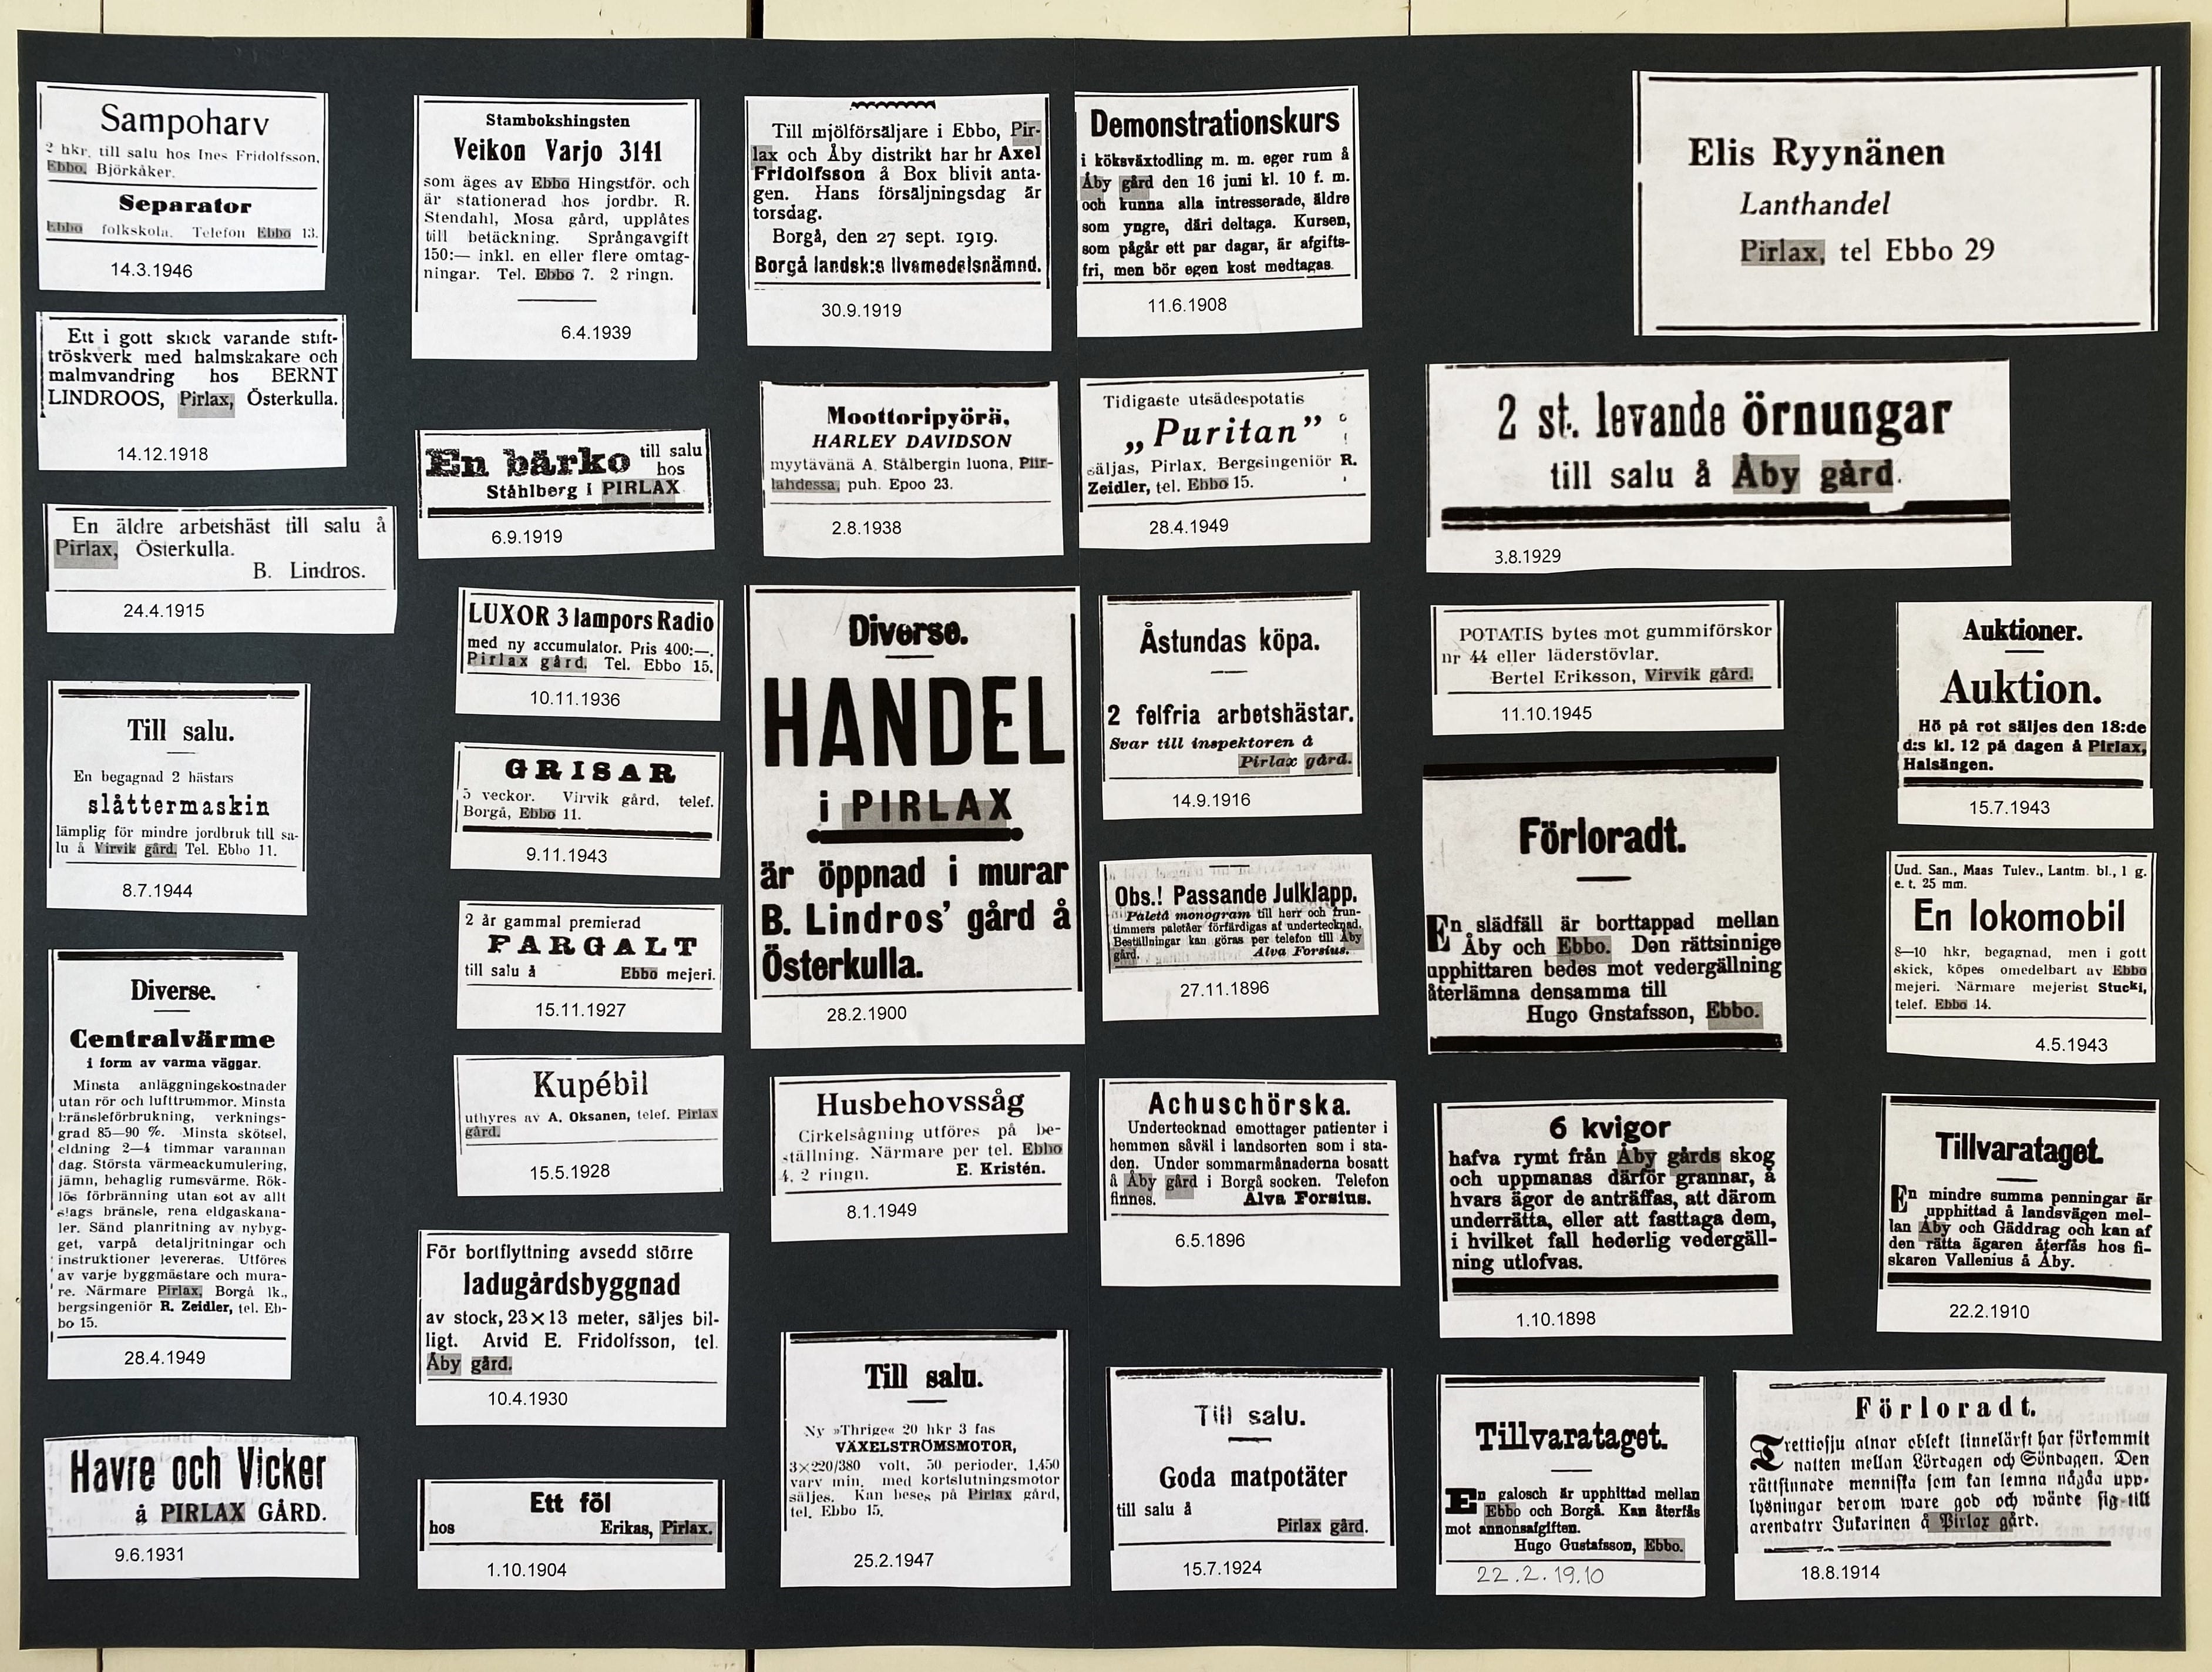 Sampoharv
2 hkr. till salu hos Ines Fridolfsson,
Ebbo, Björkåker.
Separator
Ebbo folkskola. Telefon Ebbo 13.
14.3.1946
Ett i gott skick varande stift-
tröskverk med halmskakare och
malmvandring hos BERNT
LINDROOS, Pirlax, Österkulla.
14.12.1918
En äldre arbetshäst till salu å
Pirlax, Österkulla.
B. Lindros.
24.4.1915
Till salu.
En begagnad 2 hästars
slåttermaskin
lämplig för mindre jordbruk till sa-
lu å Virvik gård. Tel. Ebbo 11.
8.7.1944
Diverse.
Centralvärme
i form av varma väggar.
Minsta anläggningskostnader
utan rör och lufttrummor. Minsta
bränsleförbrukning, verknings-
grad 85—90 %. Minsta skötsel,
eldning 2—4 timmar varannan
dag. Största värmeackumulering,
jämn, behaglig rumsvärme. Rök-
lös förbränning utan sot av allt
slags bränsle, rena eldgaskana-
ler. Sänd planritning av nybyg-
get, varpå detaljritningar och
instruktioner levereras. Utföres
av varje byggmästare och mura-
re. Närmare Pirlax, Borgå lk.,
bergsingeniör R. Zeidler, tel. Eb-
bo 15.
28.4.1949
Havre och Vicker
å PIRLAX GÅRD.
9.6.1931
Stambokshingsten
Veikon Varjo 3141
som äges av Ebbo Hingstför. och
är stationerad hos jordbr. R.
Stendahl, Mosa gård, upplåtes
till betäckning. Språngavgift
150:— inkl. en eller flere omtag-
ningar. Tel. Ebbo 7. 2 ringn.
6.4.1939
En bärko till salu
hos
Ståhlberg i PIRLAX
6.9.1919
LUXOR 3 lampors Radio
med ny accumulator. Pris 400:—.
Pirlax gård. Tel. Ebbo 15.
10.11.1936
GRISAR
5 veckor. Virvik gård, telef.
Borgå, Ebbo 11.
9.11.1943
2 år gammal premierad
FARGALT
till salu å Ebbo mejeri.
15.11.1927
Kupébil
uthyres av A. Oksanen, telef. Pirlax
gård.
15.5.1928
För bortflyttning avsedd större
ladugårdsbyggnad
av stock, 23×13 meter, säljes bil-
ligt. Arvid E. Fridolfsson, tel.
Åby gård.
10.4.1930
Ett föl
hos Erikas, Pirlax.
1.10.1904
Till mjölförsäljare i Ebbo, Pir-
lax och Åby distrikt har hr Axel
Fridolfsson å Box blivit anta-
gen. Hans försäljningsdag är
torsdag.
Borgå, den 27 sept. 1919.
Borgå landsk:s livsmedelsnämnd.
30.9.1919
Moottoripyörä,
HARLEY DAVIDSON
myytävänä A. Stålbergin luona, Piir-
lahdessa, puh. Epoo 23.
2.8.1938
Diverse.
HANDEL
i PIRLAX
är öppnad i murar
B. Lindros' gård å
Österkulla.
28.2.1900
Husbehovssåg
Cirkelsågning utföres på be-
ställning. Närmare per tel. Ebbo
4, 2 ringn. E. Kristén.
8.1.1949
Till salu.
Ny »Thrige« 20 hkr 3 fas
VÄXELSTRÖMSMOTOR,
3×220/380 volt, 50 perioder, 1,450
varv min. med kortslutningsmotor
säljes. Kan beses på Pirlax gård,
tel. Ebbo 15.
25.2.1947
Demonstrationskurs
i köksväxtodling m. m. eger rum å
Åby gård den 16 juni kl. 10 f. m.
och kunna alla intresserade, äldre
som yngre, däri deltaga. Kursen,
som pågår ett par dagar, är afgifts-
fri, men bör egen kost medtagas.
11.6.1908
Tidigaste utsädespotatis
„Puritan”
säljas, Pirlax. Bergsingeniör R.
Zeidler, tel. Ebbo 15.
28.4.1949
Åstundas köpa.
2 felfria arbetshästar.
Svar till inspektoren å
Pirlax gård.
14.9.1916
Obs.! Passande Julklapp.
Paletå monogram till herr och frun-
timmers paletåer förfärdigas af undertecknad.
Beställningar kan göras per telefon till Åby
gård. Alva Forsius.
27.11.1896
Achuschörska.
Undertecknad emottager patienter i
hemmen såväl i landsorten som i sta-
den. Under sommarmånaderna bosatt
å Åby gård i Borgå socken. Telefon
finnes. Alva Forsius.
6.5.1896
Till salu.
Goda matpotäter
till salu å
Pirlax gård.
15.7.1924
Elis Ryynänen
Lanthandel
Pirlax, tel Ebbo 29
2 st. levande örnungar
till salu å Åby gård.
3.8.1929
POTATIS bytes mot gummiförskor
nr 44 eller läderstövlar.
Bertel Eriksson, Virvik gård.
11.10.1945
Förloradt.
En slädfäll är borttappad mellan
Åby och Ebbo. Den rättsinnige
upphittaren bedes mot vedergällning
återlämna densamma till
Hugo Gnstafsson, Ebbo.
6 kvigor
hafva rymt från Åby gårds skog
och uppmanas därför grannar, å
hvars ägor de anträffas, att därom
underrätta, eller att fasttaga dem,
i hvilket fall hederlig vedergäll-
ning utlofvas.
1.10.1898
Tillvarataget.
En galosch är upphittad mellan
Ebbo och Borgå. Kan återfås
mot annonsafgiften.
Hugo Gustafsson, Ebbo.
22.2.1910
Auktioner.
Auktion.
Hö på rot säljes den 18:de
d:s kl. 12 på dagen å Pirlax,
Halsängen.
15.7.1943
Uud. San., Maas Tulev., Lantm. bl., 1 g.
e. t. 25 mm.
En lokomobil
8—10 hkr, begagnad, men i gott
skick, köpes omedelbart av Ebbo
mejeri. Närmare mejerist Stucki,
telef. Ebbo 14.
4.5.1943
Tillvarataget.
En mindre summa penningar är
upphittad å landsvägen mel-
lan Åby och Gäddrag och kan af
den rätta ägaren återfås hos fi-
skaren Vallenius å Åby.
22.2.1910
Förloradt.
Trettiosju alnar oblekt linnelärft har förkommit
natten mellan Lördagen och Söndagen. Den
rättsinnade menniska som kan lemna någåa upp-
lysningar derom ware god och wände sig till
arendatrr Jukarinen å Pirlax gård.
18.8.1914